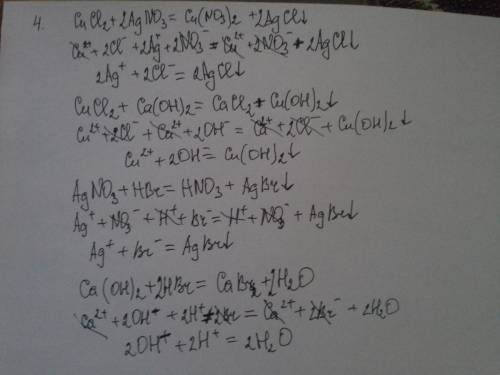 4. CuCl₂ + 2AgNO₃ = Cu(NO₃)₂ + 2AgCl↓
Cu²⁺ + 2Cl⁻ + 2Ag⁺ + 2NO₃⁻ = Cu²⁺ + 2NO₃⁻ + 2AgCl↓
2Ag⁺ + 2Cl⁻ = 2AgCl↓
CuCl₂ + Ca(OH)₂ = CaCl₂ + Cu(OH)₂↓
Cu²⁺ + 2Cl⁻ + Ca²⁺ + 2OH⁻ = Ca²⁺ + 2Cl⁻ + Cu(OH)₂↓
Cu²⁺ + 2OH⁻ = Cu(OH)₂↓
AgNO₃ + HBr = HNO₃ + AgBr↓
Ag⁺ + NO₃⁻ + H⁺ + Br⁻ = H⁺ + NO₃⁻ + AgBr↓
Ag⁺ + Br⁻ = AgBr↓
Ca(OH)₂ + 2HBr = CaBr₂ + 2H₂O
Ca²⁺ + 2OH⁺ + 2H⁺ + 2Br = Ca²⁺ + 2Br⁻ + 2H₂O
2OH⁺ + 2H⁺ = 2H₂O